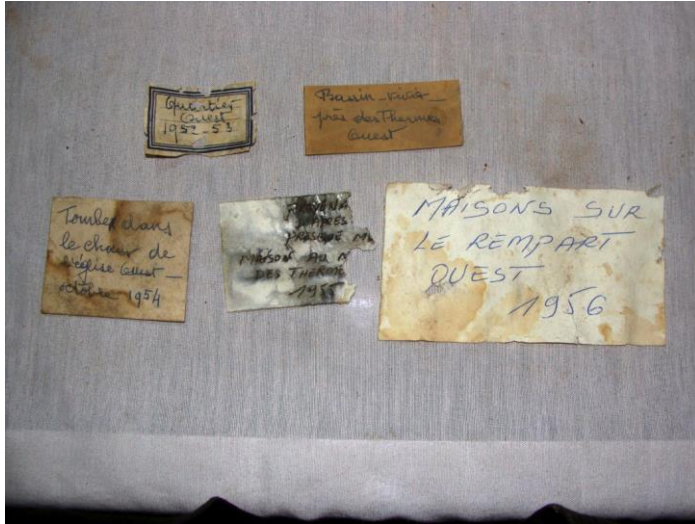 Quartier
Ouest
1952-53
Bassin-vivier
près des Thermes
Ouest
Tombes dans
le chœur de
l'église Ouest -
octobre 1954
MAISON AU N
DES THERME
1955
MAISONS SUR
LE REMPART
OUEST
1956